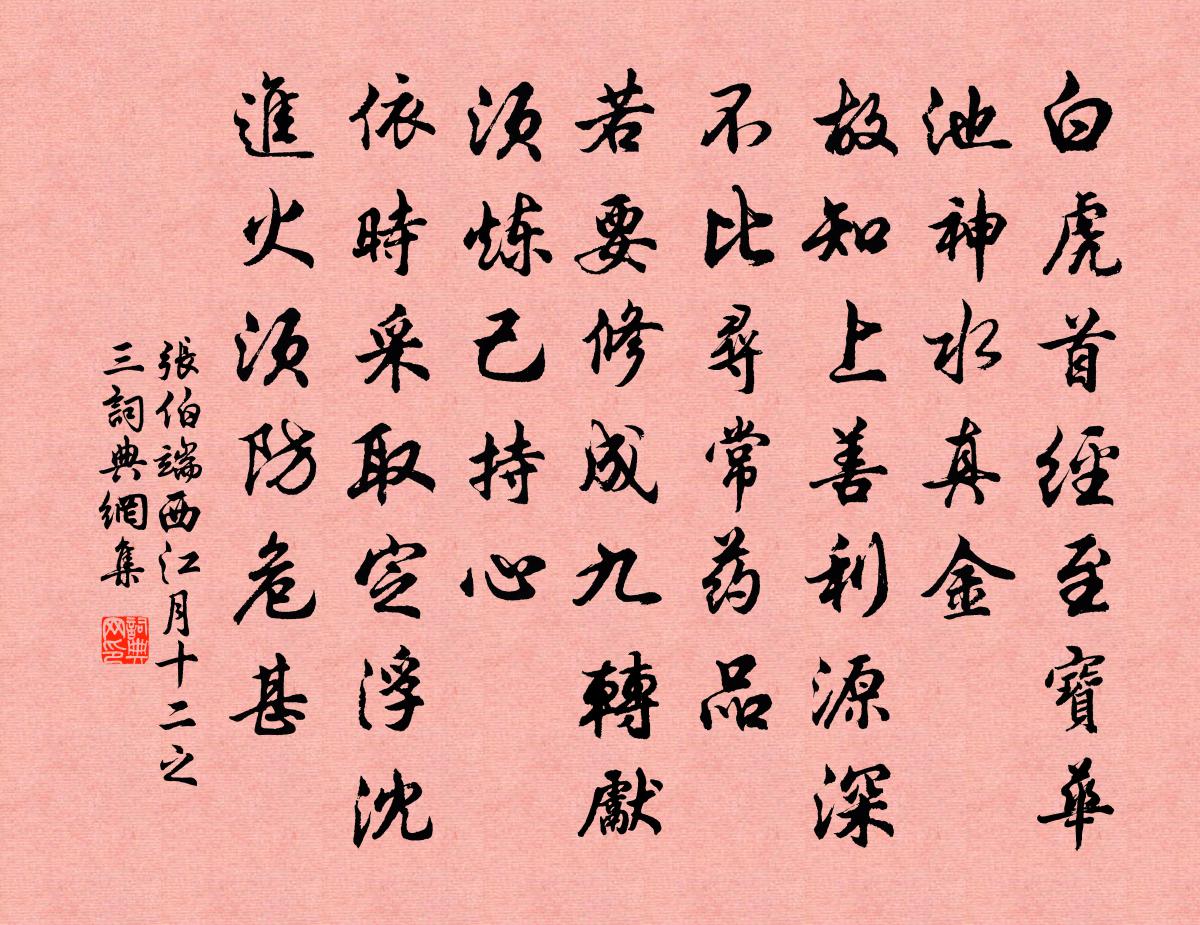 白虎首經至寶華
池神水真金
故知上善利源深
不比尋常药品
若要修成九轉獻
須炼己持心
依時采取定浮沈
進火須防危甚
張伯端西江月十二之
三詞典網集
詞典网印